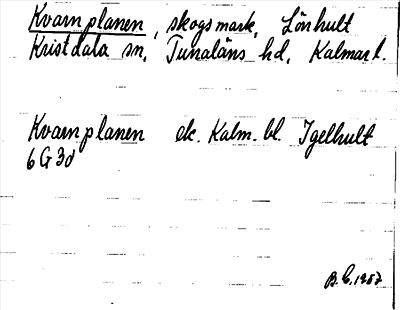 Kvarnplanen, skogsmark, Lönhult
Kristdala sn, Tunaläns hd, Kalmar l.
Kvarnplanen ek. Kalm. bl. Igelhult
6 G 3d
B.C. 1957